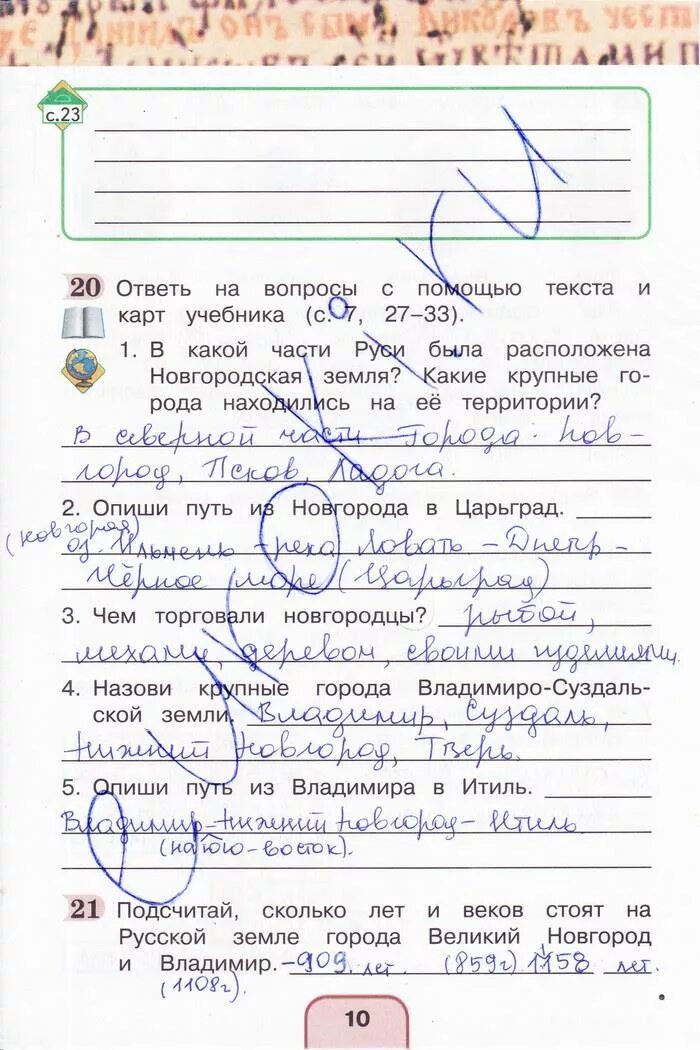 с.23
20 Ответь на вопросы с помощью текста и
карт учебника (с. 7, 27–33).
1. В какой части Руси была расположена
Новгородская земля? Какие крупные го-
рода находились на её территории?
В северной части Города: Нов-
город, Псков, Ладога.
2. Опиши путь из Новгорода в Царьград.
(Новгород)
оз. Ильмень - река Ловать - Днепр -
Чёрное море (Царьград)
3. Чем торговали новгородцы? рыбой,
мехами, деревом, своими изделиями.
4. Назови крупные города Владимиро-Суздаль-
ской земли. Владимир, Суздаль,
Нижний Новгород, Тверь.
5. Опиши путь из Владимира в Итиль.
Владимир - Нижний Новгород - Итиль
(на юго-восток).
21 Подсчитай, сколько лет и веков стоят на
Русской земле города Великий Новгород
и Владимир. - 909 лет (859г) 1158 лет.
(1108г).
10